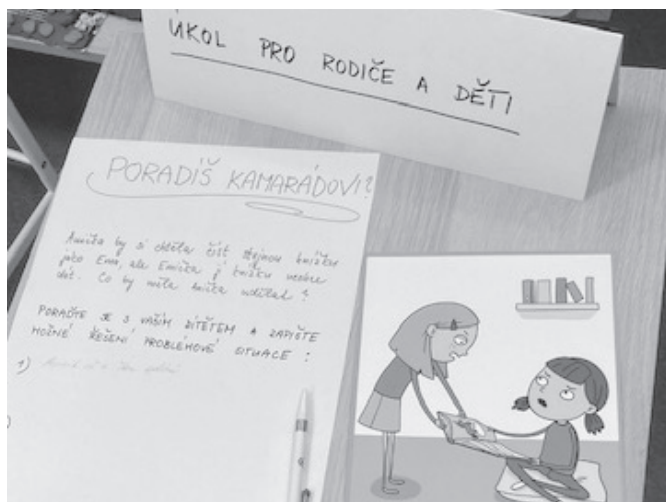 ÚKOL PRO RODIČE A DĚTI
PORADÍŠ KAMARÁDOVI?
Anička by si chtěla číst stejnou knížku
jako Ema, ale Emička jí knížku nechce
dát. Co by měla Anička udělat?
PORAĎTE SE S VAŠÍM DÍTĚTEM A ZAPIŠTE
MOŽNÉ ŘEŠENÍ PROBLÉMOVÉ SITUACE:
1)